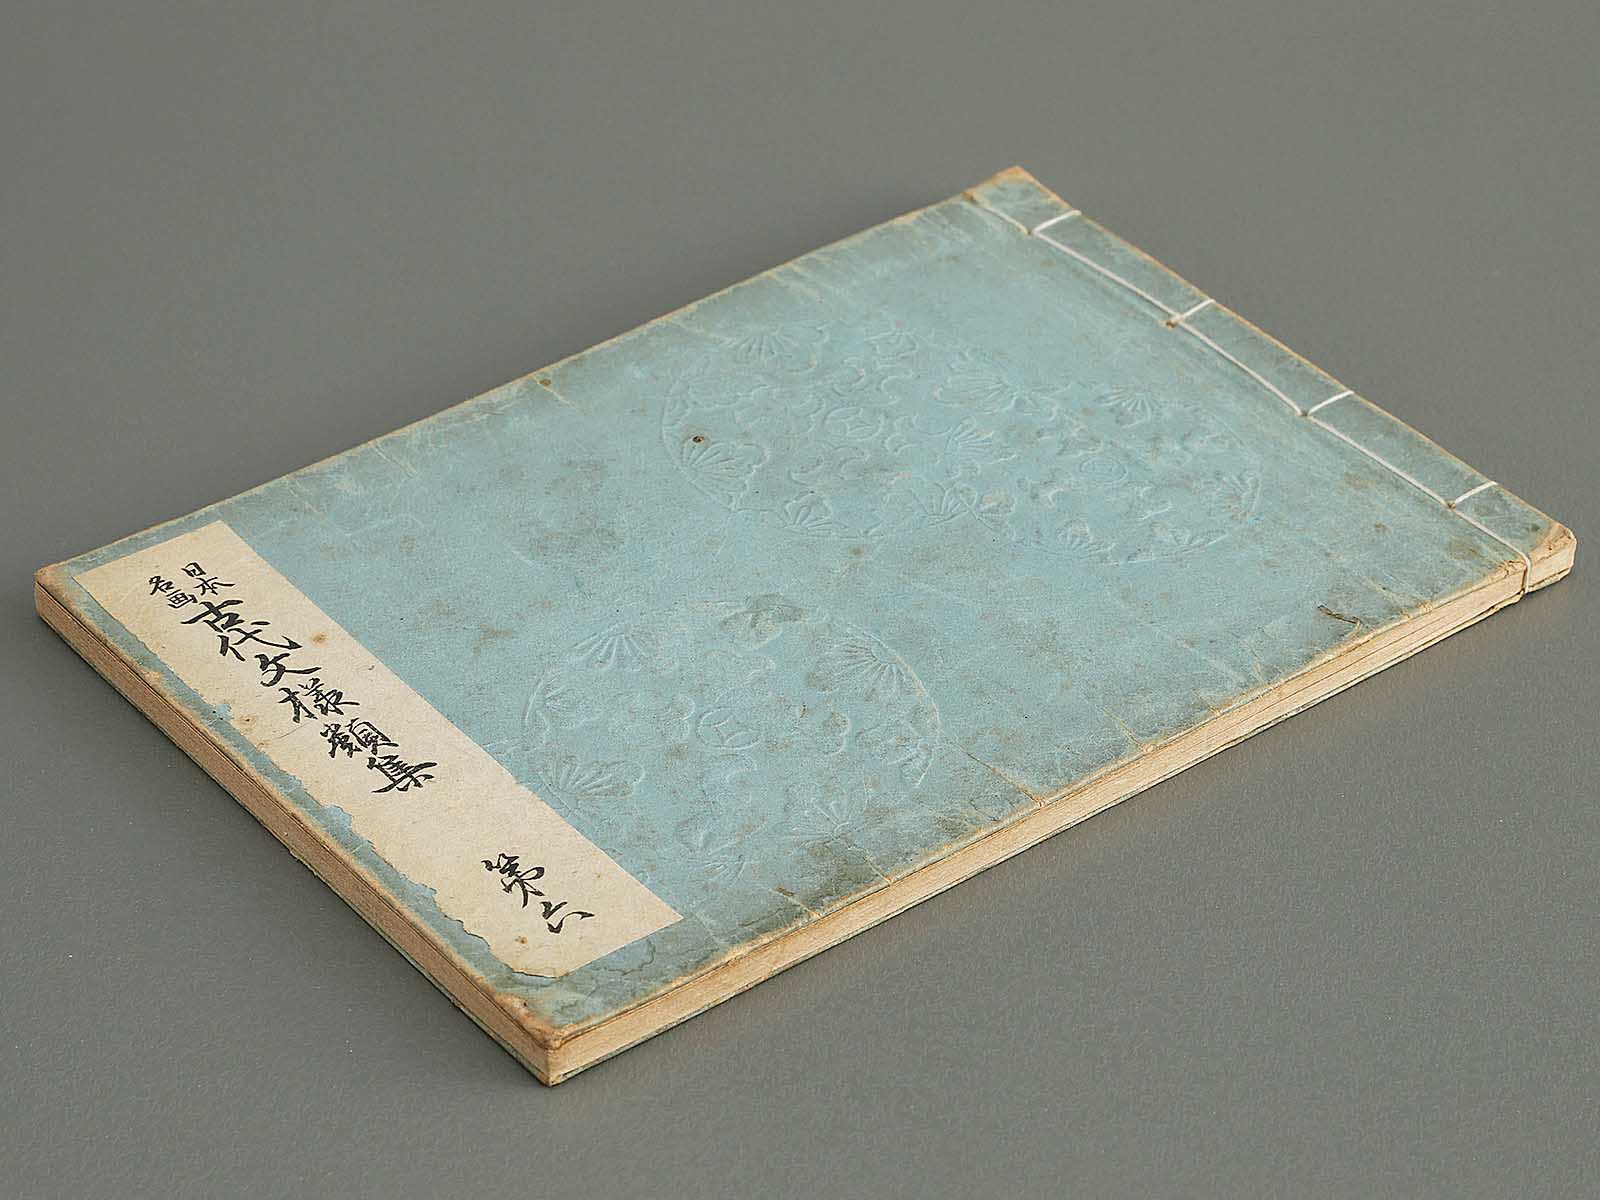 日本
名画
古代文様類集
第六